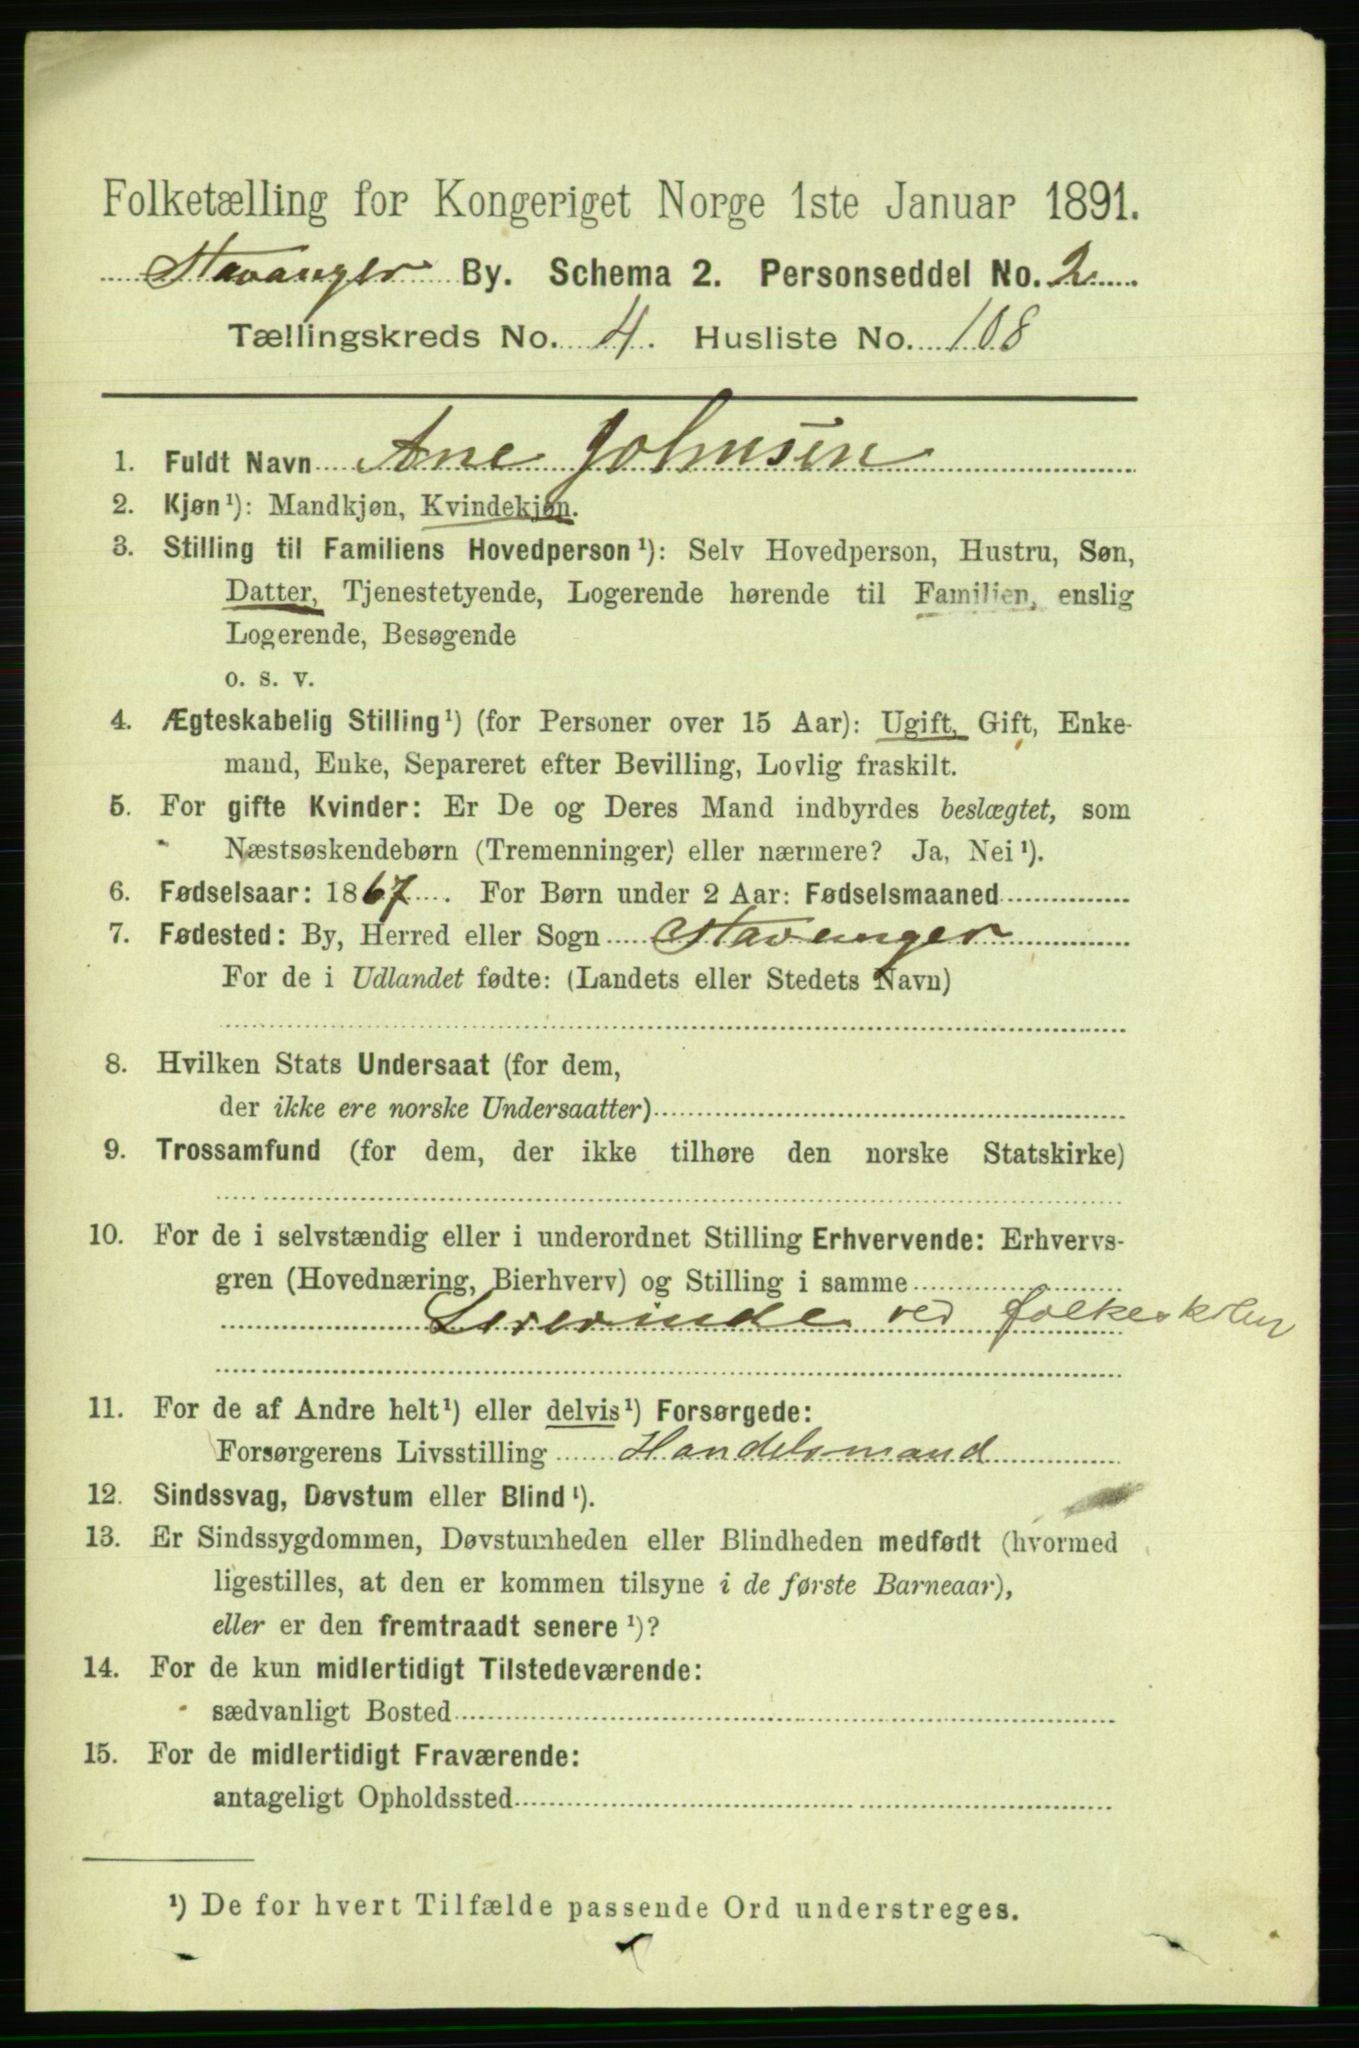 Folketælling for Kongeriget Norge 1ste Januar 1891.
Stavanger By. Schema 2. Personseddel No. 2
Tællingskreds No. 4. Husliste No. 108
1. Fuldt Navn Ane Johnsen
2. Kjøn ¹): Mandkjøn, Kvindekjøn.
3. Stilling til Familiens Hovedperson ¹): Selv Hovedperson, Hustru, Søn,
Datter, Tjenestetyende, Logerende hørende til Familien, enslig
Logerende, Besøgende
o. s. v.
4. Ægteskabelig Stilling ¹) (for Personer over 15 Aar): Ugift, Gift, Enke-
mand, Enke, Separeret efter Bevilling, Lovlig fraskilt.
5. For gifte Kvinder: Er De og Deres Mand indbyrdes beslægtet, som
Næstsøskendebørn (Tremenninger) eller nærmere? Ja, Nei ¹).
6. Fødselsaar: 1867. For Børn under 2 Aar: Fødselsmaaned
7. Fødested: By, Herred eller Sogn Stavanger
For de i Udlandet fødte: (Landets eller Stedets Navn)
8. Hvilken Stats Undersaat (for dem,
der ikke ere norske Undersaatter)
9. Trossamfund (for dem, der ikke tilhøre den norske Statskirke)
10. For de i selvstændig eller i underordnet Stilling Erhvervende: Erhvervs-
gren (Hovednæring, Bierhverv) og Stilling i samme
Lererinde ved folkeskolen
11. For de af Andre helt ¹) eller delvis ¹) Forsørgede:
Forsørgerens Livsstilling Handelsmand
12. Sindssvag, Døvstum eller Blind ¹).
13. Er Sindssygdommen, Døvstumheden eller Blindheden medfødt (hvormed
ligestilles, at den er kommen tilsyne i de første Barneaar),
eller er den fremtraadt senere ¹)?
14. For de kun midlertidigt Tilstedeværende:
sædvanligt Bosted
15. For de midlertidigt Fraværende:
antageligt Opholdssted
¹) De for hvert Tilfælde passende Ord understreges.